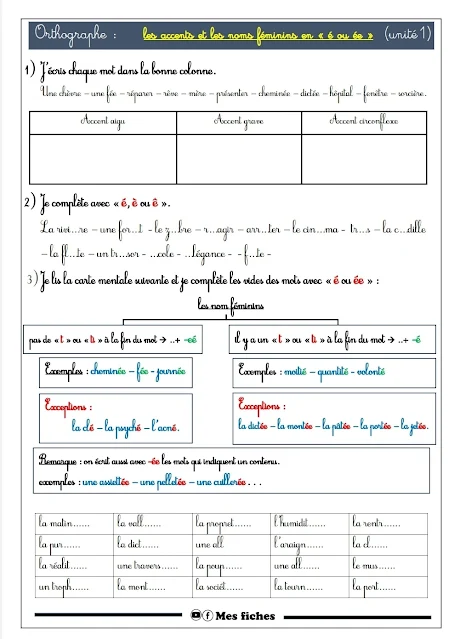 Orthographe : les accents et les noms féminins en « é ou ée » (unité 1)
1) J'écris chaque mot dans la bonne colonne.
Une chèvre – une fée – réparer – rêve – mère – présenter – cheminée – dictée – hôpital – fenêtre – sorcière.
Accent aigu Accent grave Accent circonflexe
2) Je complète avec « é, è ou ê ».
La rivi...re – une for...t - le z...bre – r...agir – arr...ter – le cin...ma - tr...s – la c...dille
– la fl...te – un tr...sor - ...cole - ...légance - - f...te -
3) Je lis la carte mentale suivante et je complète les vides des mots avec « é ou ée » :
Les nom féminins
pas de « t » ou « ti » à la fin du mot → ..+ -eé
il y a un « t » ou « ti » à la fin du mot → ..+ -é
Exemples : cheminée – fée - journée
Exemples : moitié – quantité - volonté
Exceptions :
la clé – la psyché – l'acné.
Exceptions :
la dictée – la montée – la pâtée – la portée – la jetée.
Remarque : on écrit aussi avec -ée les mots qui indiquent un contenu.
exemples : une assiettée – une pelletée – une cuillerée . . .
la matin...... la vall...... la propret...... l'humidit...... la rentr......
la pur...... la dict...... une all...... l'araign...... la cl......
la réalit...... une travers...... la poup...... une all...... le mus......
un troph...... la mont...... la societ...... la tourn...... la port......
Mes fiches